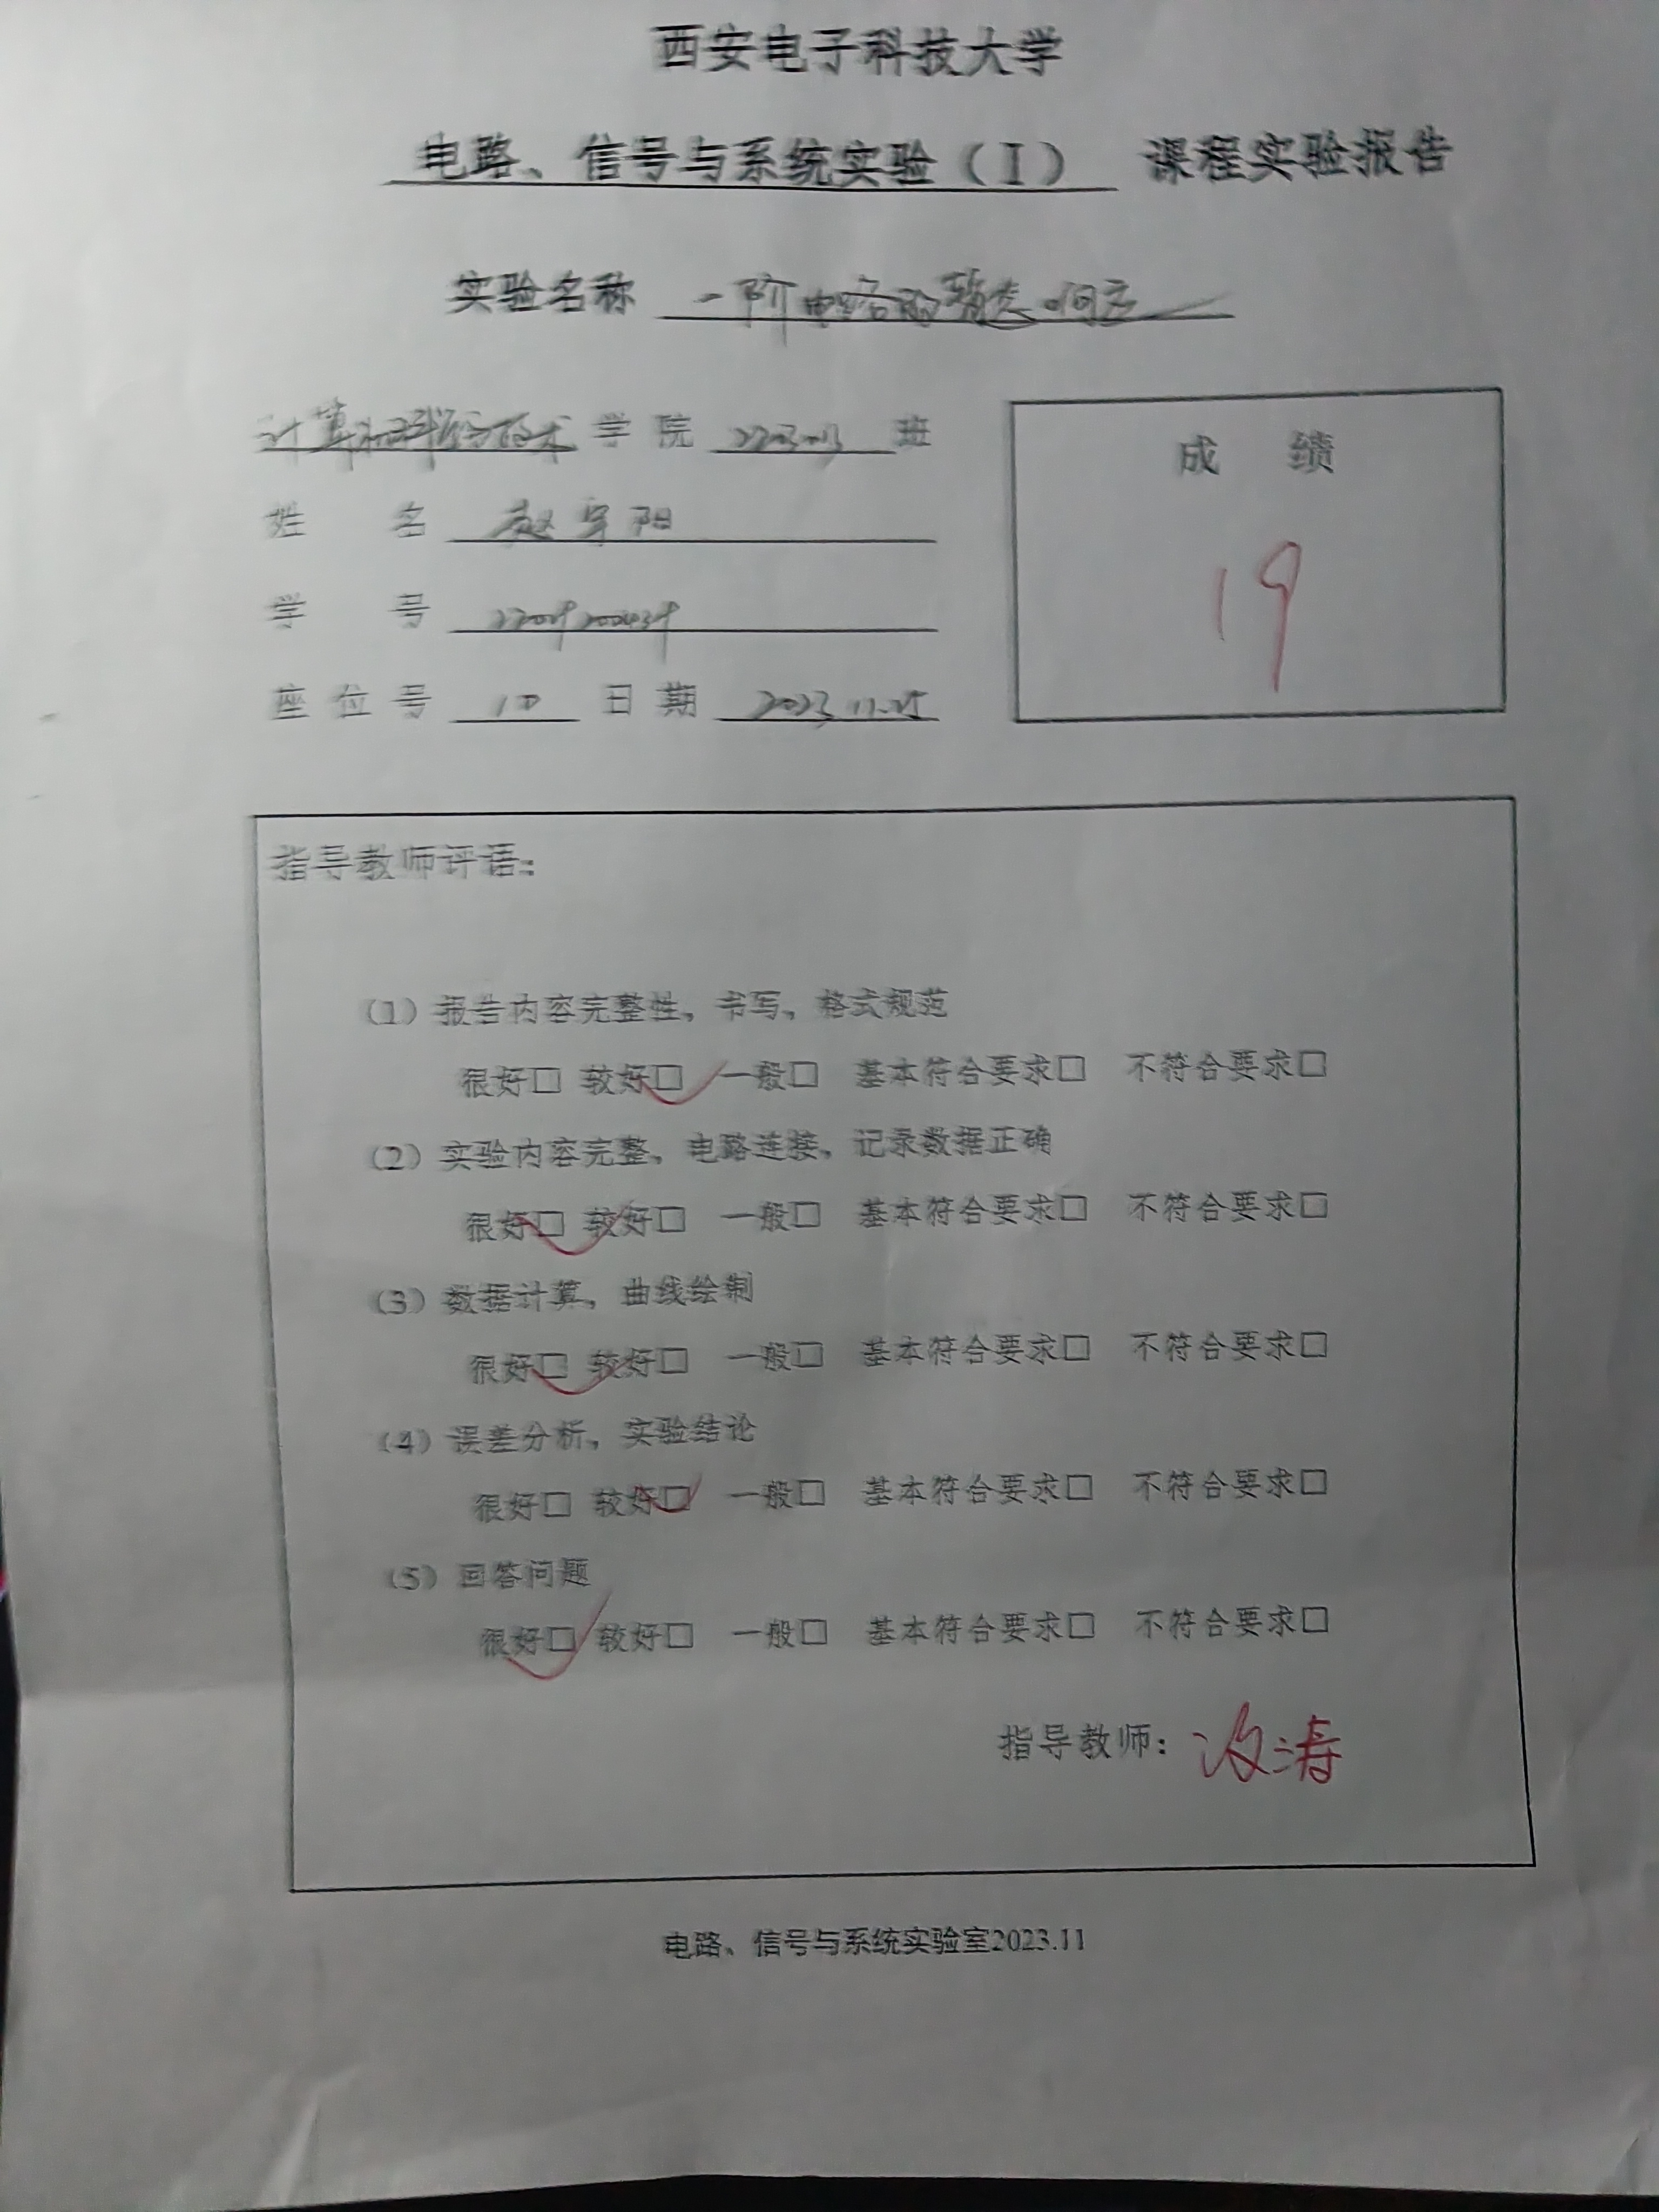 西安电子科技大学
电路、信号与系统实验（I） 课程实验报告
实验名称 一阶电路的暂态响应
计算机科学与技术 学院 班
成 绩
姓 名 赵宇阳
19
学 号
座位号 10 日期 2023.11.25
指导教师评语：
（1）报告内容完整性，书写，格式规范
很好□ 较好□✓ 一般□ 基本符合要求□ 不符合要求□
（2）实验内容完整，电路连接，记录数据正确
很好□✓ 较好□ 一般□ 基本符合要求□ 不符合要求□
（3）数据计算，曲线绘制
很好□✓ 较好□ 一般□ 基本符合要求□ 不符合要求□
（4）误差分析，实验结论
很好□ 较好□✓ 一般□ 基本符合要求□ 不符合要求□
（5）回答问题
很好□✓ 较好□ 一般□ 基本符合要求□ 不符合要求□
指导教师： 涛
电路、信号与系统实验室2023.11